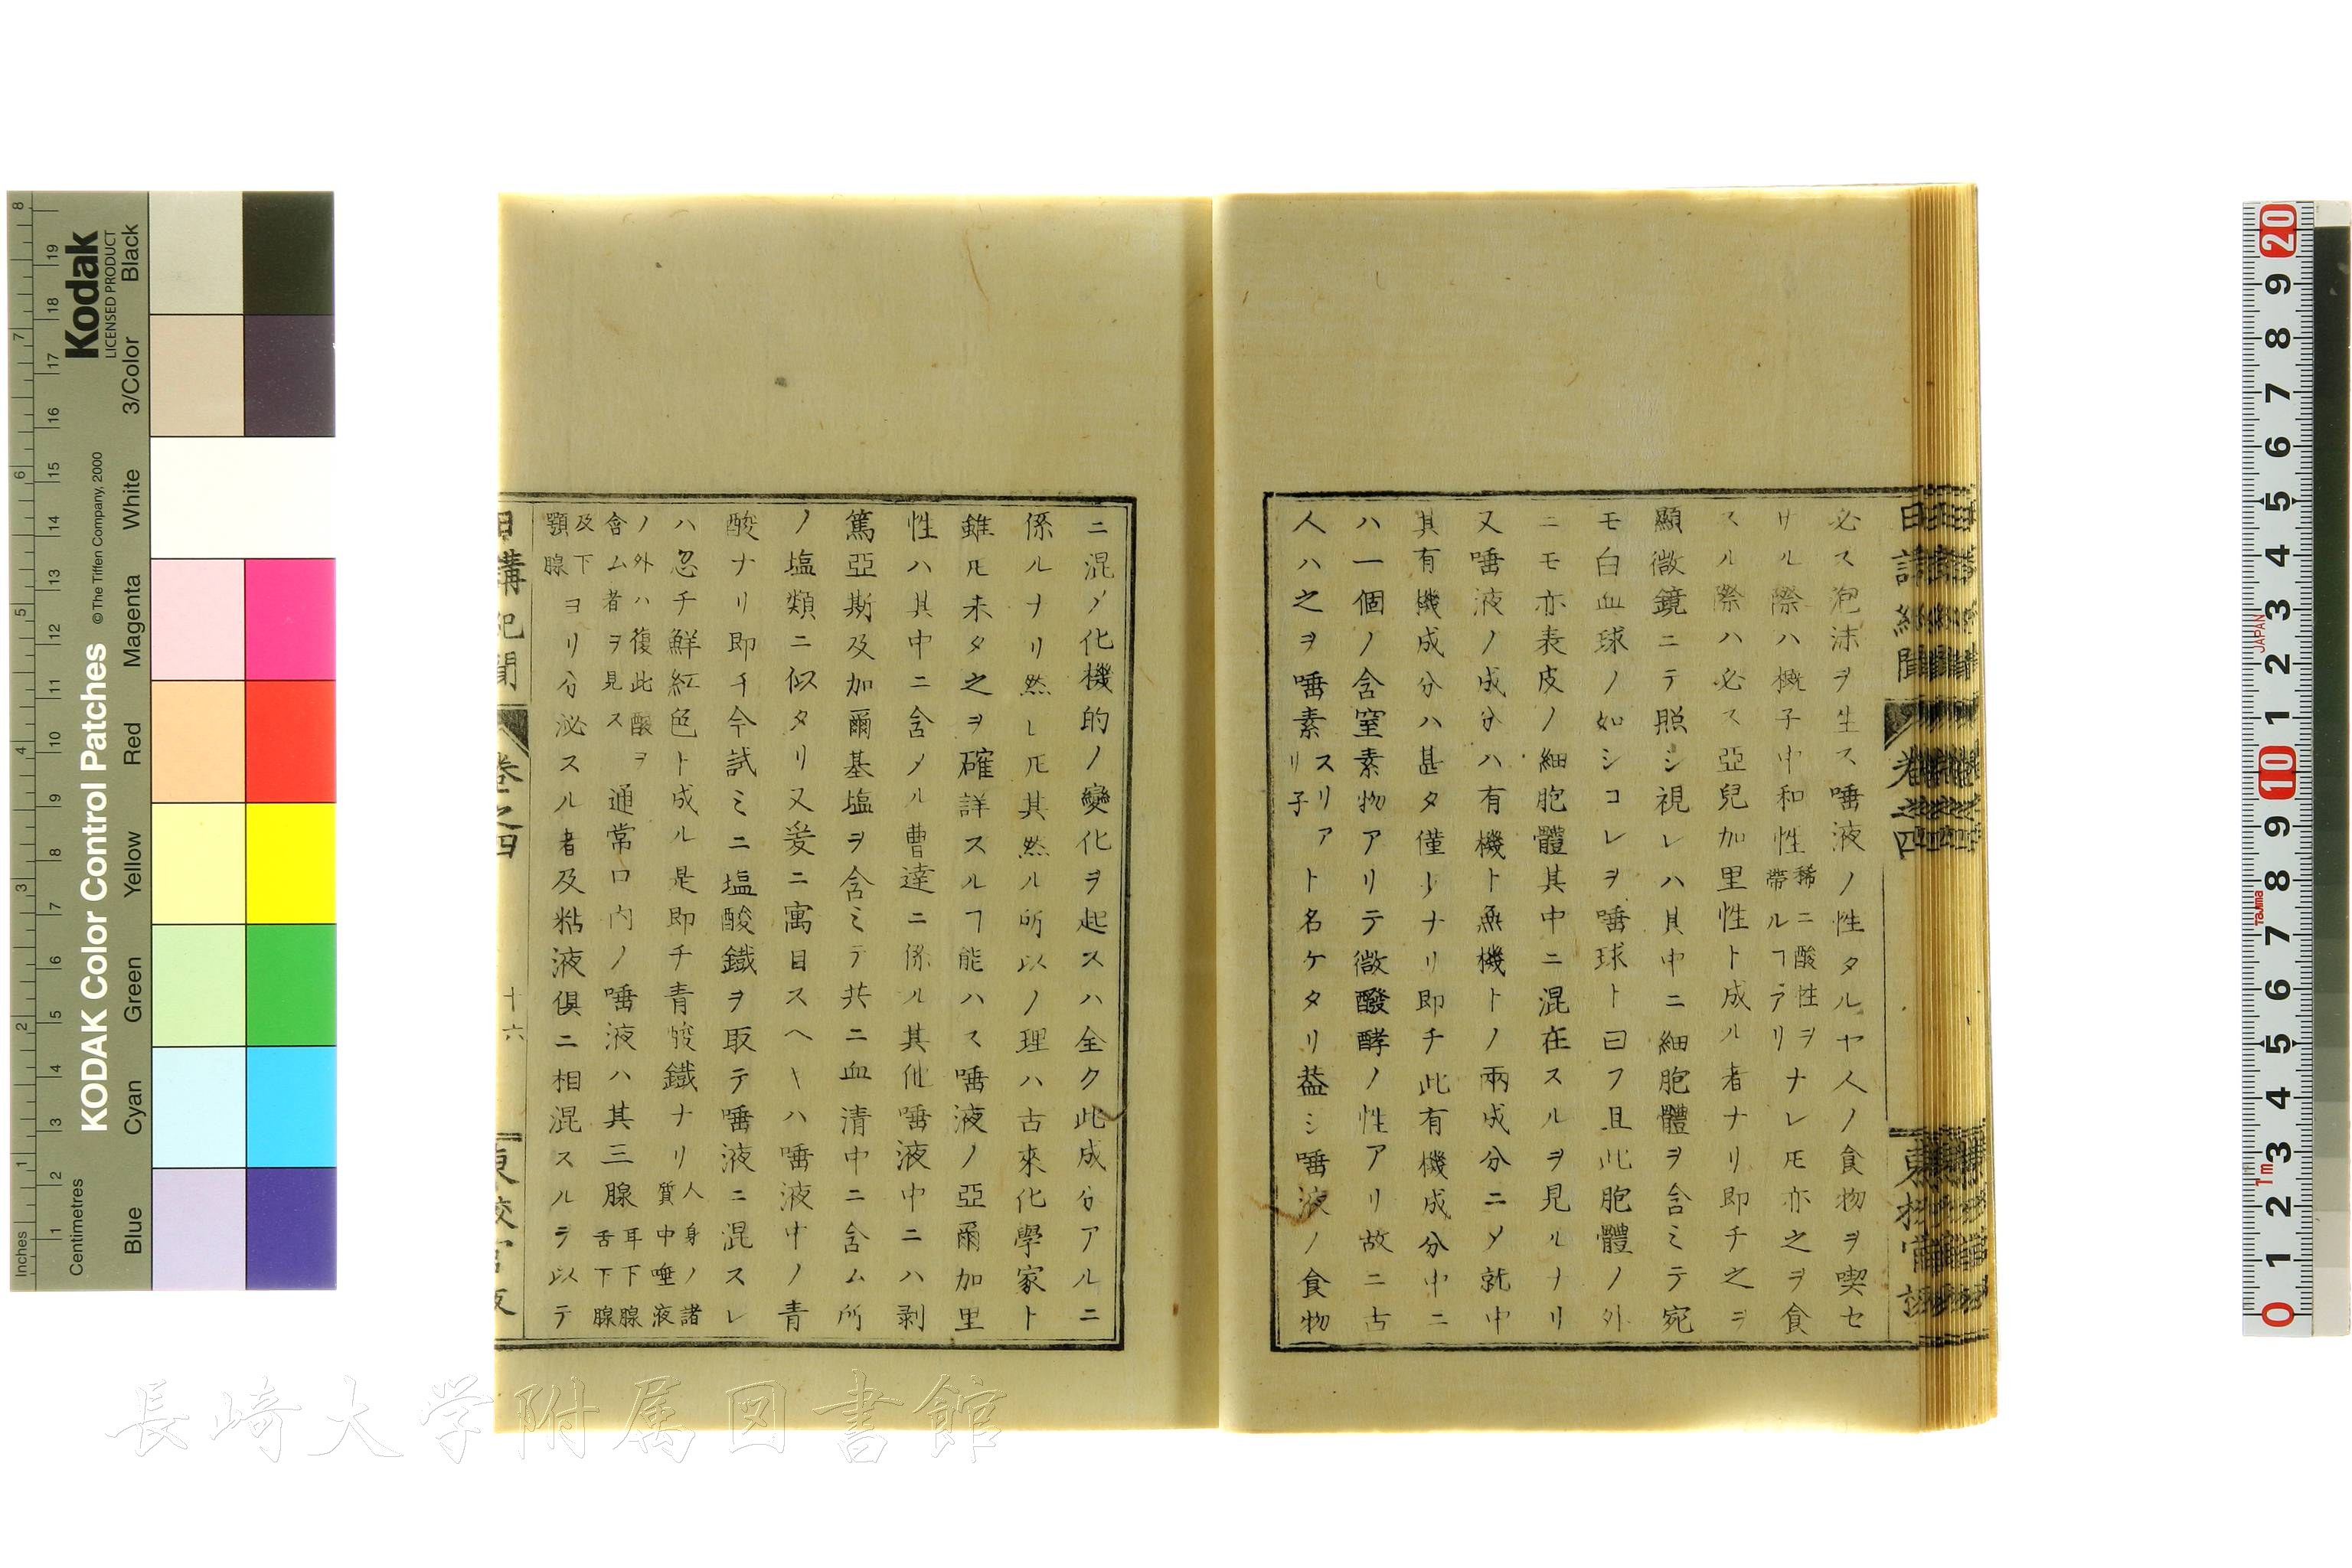 必ス泡沫ヲ生ス唾液ノ性タルヤ人ノ食物ヲ喫セ
サル際ハ概子中和性稀ニ酸性ヲ帶ルヿアリナレ𪜈亦之ヲ食
スル際ハ必ス亞兒加里性ト成ル者ナリ即チ之ヲ
顯微鏡ニテ照シ視レハ其中ニ細胞體ヲ含ミテ宛
モ白血球ノ如シコレヲ唾球ト曰フ且此胞體ノ外
ニモ亦表皮ノ細胞體其中ニ混在スルヲ見ルナリ
又唾液ノ成分ハ有機ト無機トノ兩成分ニ〆就中
其有機成分ハ甚タ僅少ナリ即チ此有機成分中ニ
ハ一個ノ含窒素物アリテ微醱酵ノ性アリ故ニ古
人ハ之ヲ唾素スリアリ子ト名ケタリ葢シ唾液ノ食物
ニ混〆化機的ノ變化ヲ起スハ全ク此成分アルニ
係ルナリ然レ𪜈其然ル所以ノ理ハ古來化學家ト
雖𪜈未タ之ヲ確詳スルヿ能ハス唾液ノ亞爾加里
性ハ其中ニ含メル曹達ニ係ル其他唾液中ニハ剥
篤亞斯及加爾基塩ヲ含ミテ共ニ血清中ニ含ム所
ノ塩類ニ似タリ又爰ニ寓目スヘキハ唾液中ノ青
酸ナリ即チ今試ミニ塩酸鐵ヲ取テ唾液ニ混スレ
ハ忽チ鮮紅色ト成ル是即チ青酸鐵ナリ人身ノ諸質中唾液
ノ外ハ復此酸ヲ含ム者ヲ見ス通常口内ノ唾液ハ其三腺耳下腺舌下腺
及下顎腺ヨリ分泌スル者及粘液倶ニ相混スルヲ以テ
日講紀聞 卷之四 十六 東校官版
日講紀聞 卷之四 東校官版
長崎大学附属図書館
Kodak
LICENSED PRODUCT
KODAK Color Control Patches
© The Tiffen Company, 2000
Inches
Centimetres
Blue Cyan Green Yellow Red Magenta White 3/Color Black
1 2 3 4 5 6 7 8
1 2 3 4 5 6 7 8 9 10 11 12 13 14 15 16 17 18 19
20 9 8 7 6 5 4 3 2 1 10 9 8 7 6 5 4 3 2 1 0
JAPAN
Tajima
1m